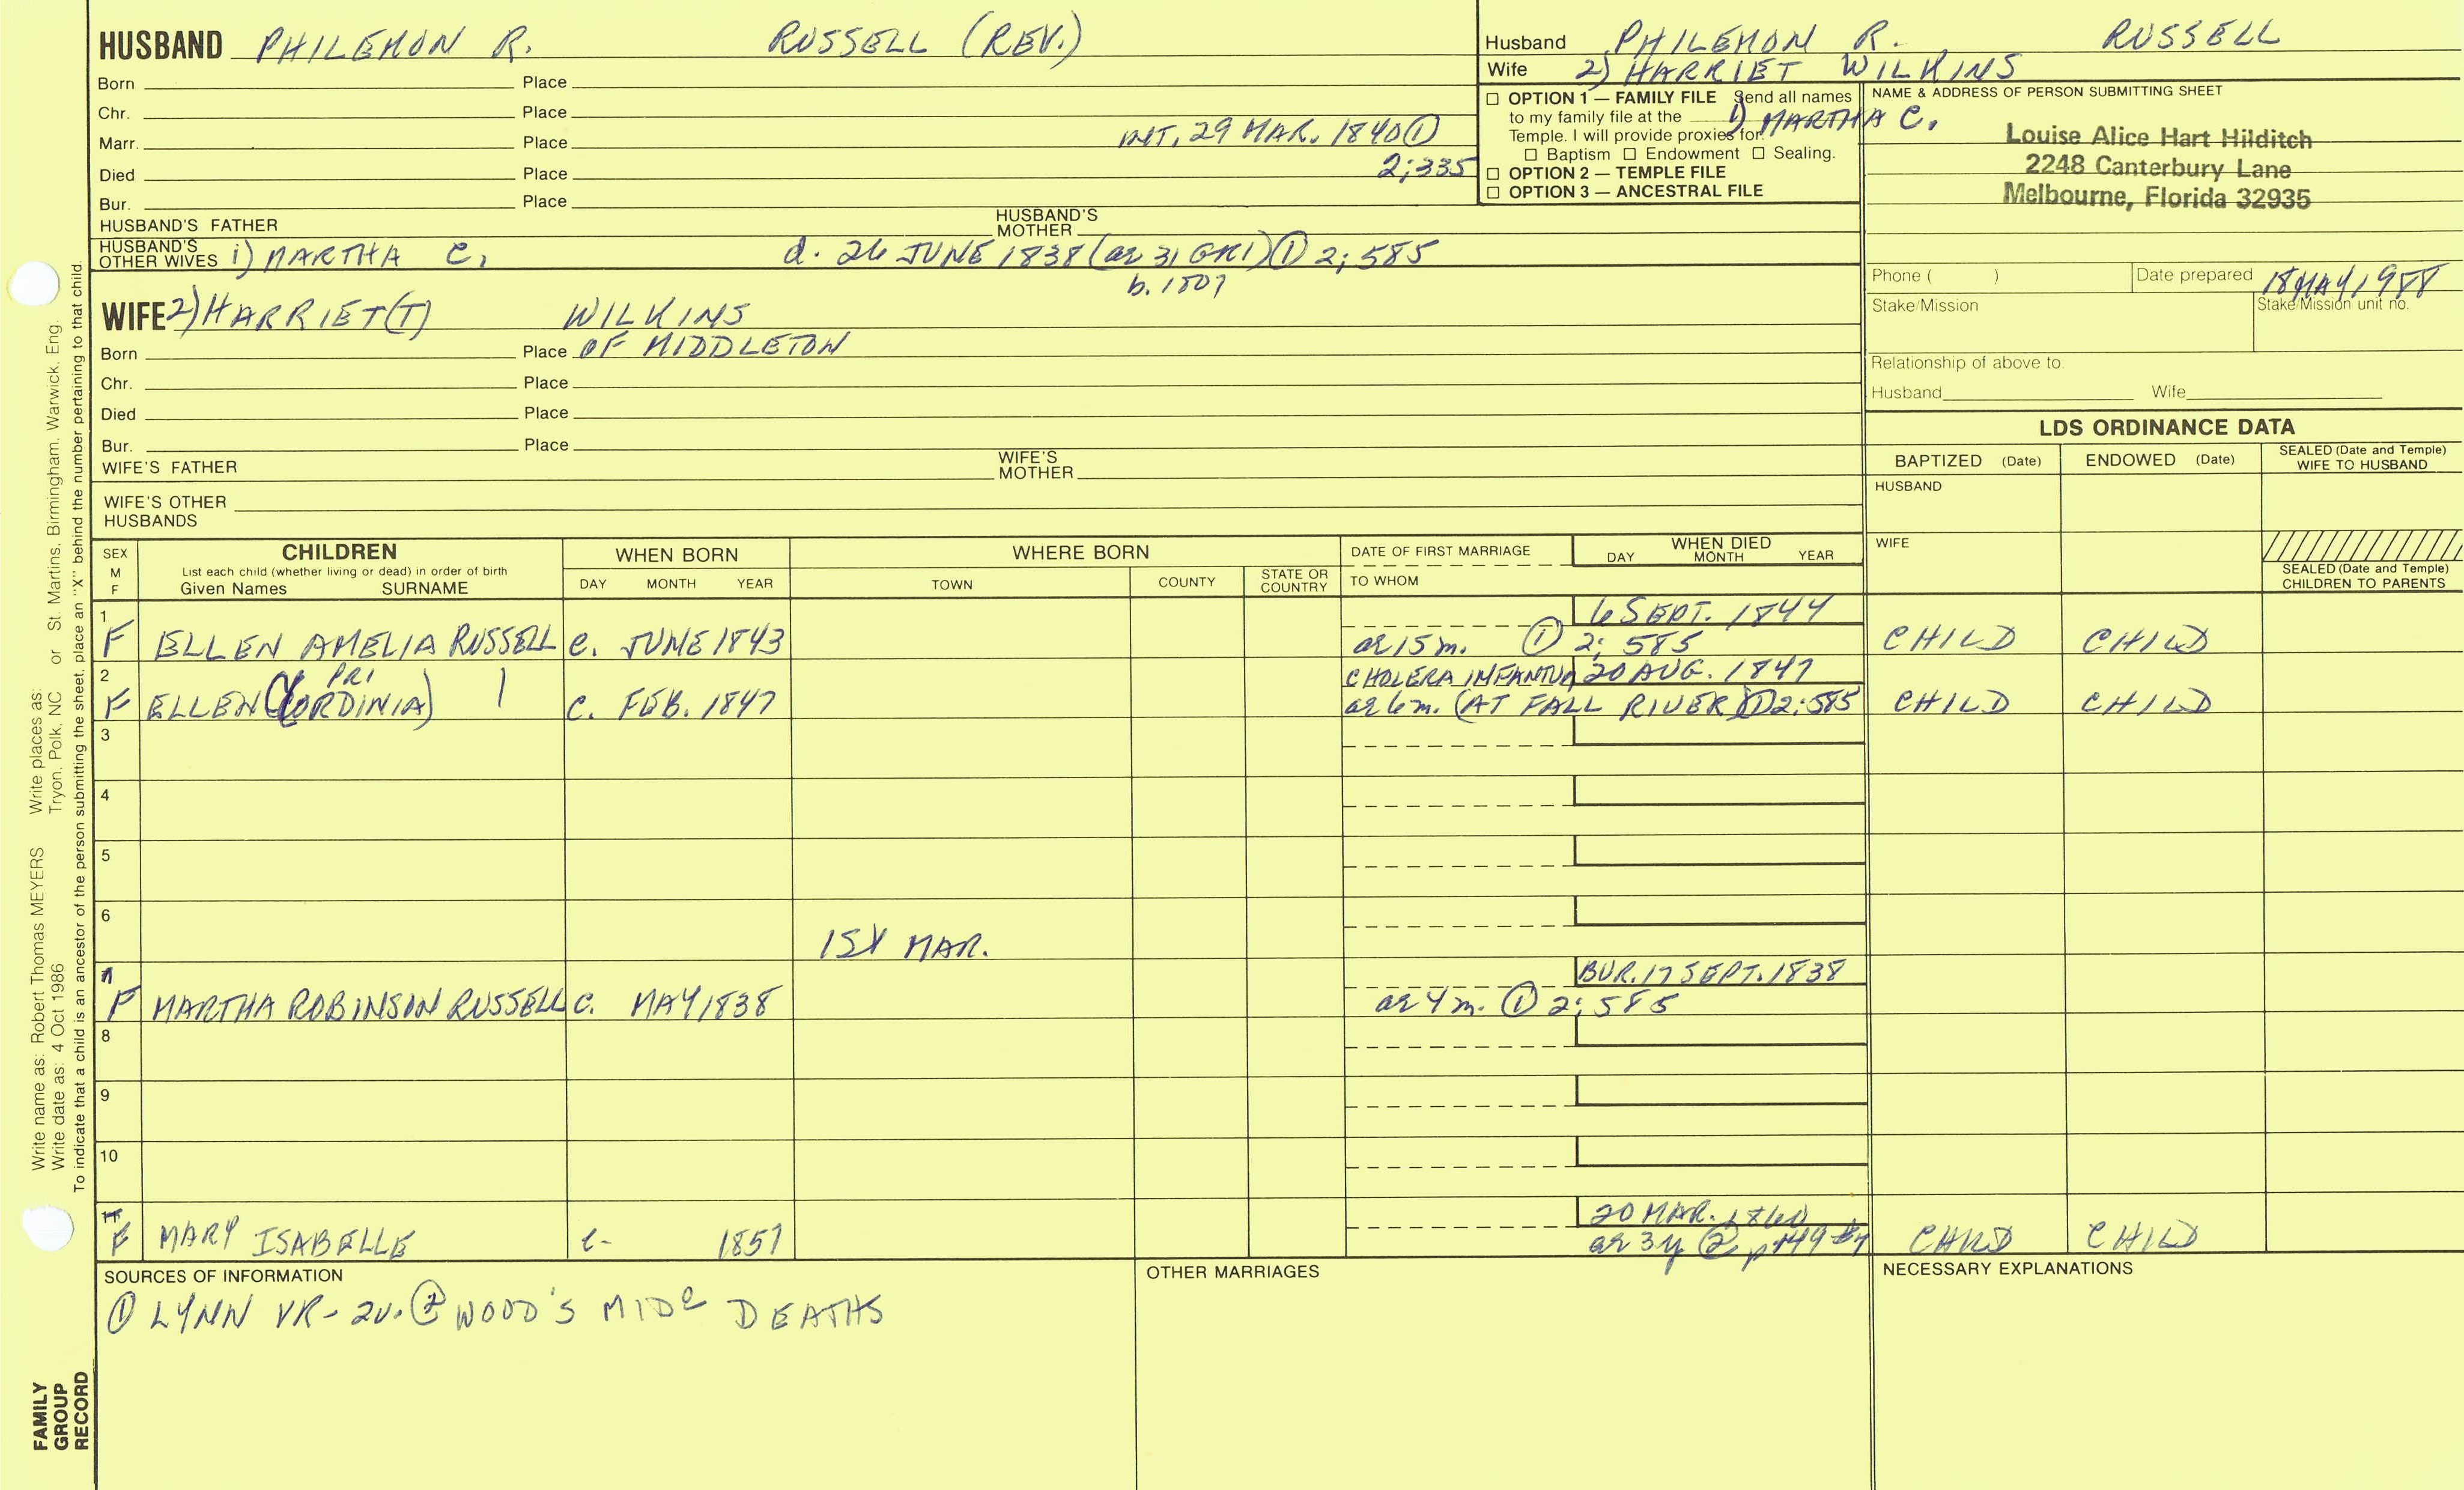 HUSBAND PHILEMON R. RUSSELL (REV.)
Born Place
Chr. Place
Marr. Place INT. 29 MAR. 1840 ①
Died Place 2;335
Bur. Place
HUSBAND'S FATHER HUSBAND'S MOTHER
HUSBAND'S OTHER WIVES 1) MARTHA C. d. 26 JUNE 1838 (ae 31 GR1) ① 2;585
b. 1807
WIFE 2) HARRIET(T) WILKINS
Born Place OF MIDDLETON
Chr. Place
Died Place
Bur. Place
WIFE'S FATHER WIFE'S MOTHER
WIFE'S OTHER HUSBANDS
Husband PHILEMON R. RUSSELL
Wife 2) HARRIET WILKINS
1) MARTHA C.
☐ OPTION 1 — FAMILY FILE Send all names
to my family file at the
Temple. I will provide proxies for
☐ Baptism ☐ Endowment ☐ Sealing.
☐ OPTION 2 — TEMPLE FILE
☐ OPTION 3 — ANCESTRAL FILE
NAME & ADDRESS OF PERSON SUBMITTING SHEET
Louise Alice Hart Hilditch
2248 Canterbury Lane
Melbourne, Florida 32935
Phone ( ) Date prepared 18 MAY 1988
Stake/Mission Stake/Mission unit no.
Relationship of above to:
Husband Wife
LDS ORDINANCE DATA
BAPTIZED (Date) ENDOWED (Date) SEALED (Date and Temple) WIFE TO HUSBAND
HUSBAND
WIFE
SEALED (Date and Temple) CHILDREN TO PARENTS
SEX M F
CHILDREN
List each child (whether living or dead) in order of birth
Given Names SURNAME
WHEN BORN
DAY MONTH YEAR
WHERE BORN
TOWN COUNTY STATE OR COUNTRY
DATE OF FIRST MARRIAGE
TO WHOM
WHEN DIED
DAY MONTH YEAR
1 6 SEPT. 1844
F ELLEN AMELIA RUSSELL C. JUNE 1843 ae 15 m. ① 2;585 CHILD CHILD
2 PRI CHOLERA INFANTUM 20 AUG. 1847
F ELLEN (CORDINIA) C. FEB. 1847 ae 6 m. (AT FALL RIVER) ① 2;585 CHILD CHILD
3
4
5
6
1ST MAR.
7 BUR. 17 SEPT. 1838
F MARTHA ROBINSON RUSSELL C. MAY 1838 ae 4 m. ① 2;585
8
9
10
11 20 MAR. 1860
F MARY ISABELLE C- 1857 ae 3y ② p149 #7 CHILD CHILD
SOURCES OF INFORMATION
① LYNN VR-2V. ② WOOD'S MIDe DEATHS
OTHER MARRIAGES
NECESSARY EXPLANATIONS
FAMILY GROUP RECORD
Write name as: Robert Thomas MEYERS Write places as: Tryon, Polk, NC or St. Martins, Birmingham, Warwick, Eng.
Write date as: 4 Oct 1986
To indicate that a child is an ancestor of the person submitting the sheet, place an "X" behind the number pertaining to that child.